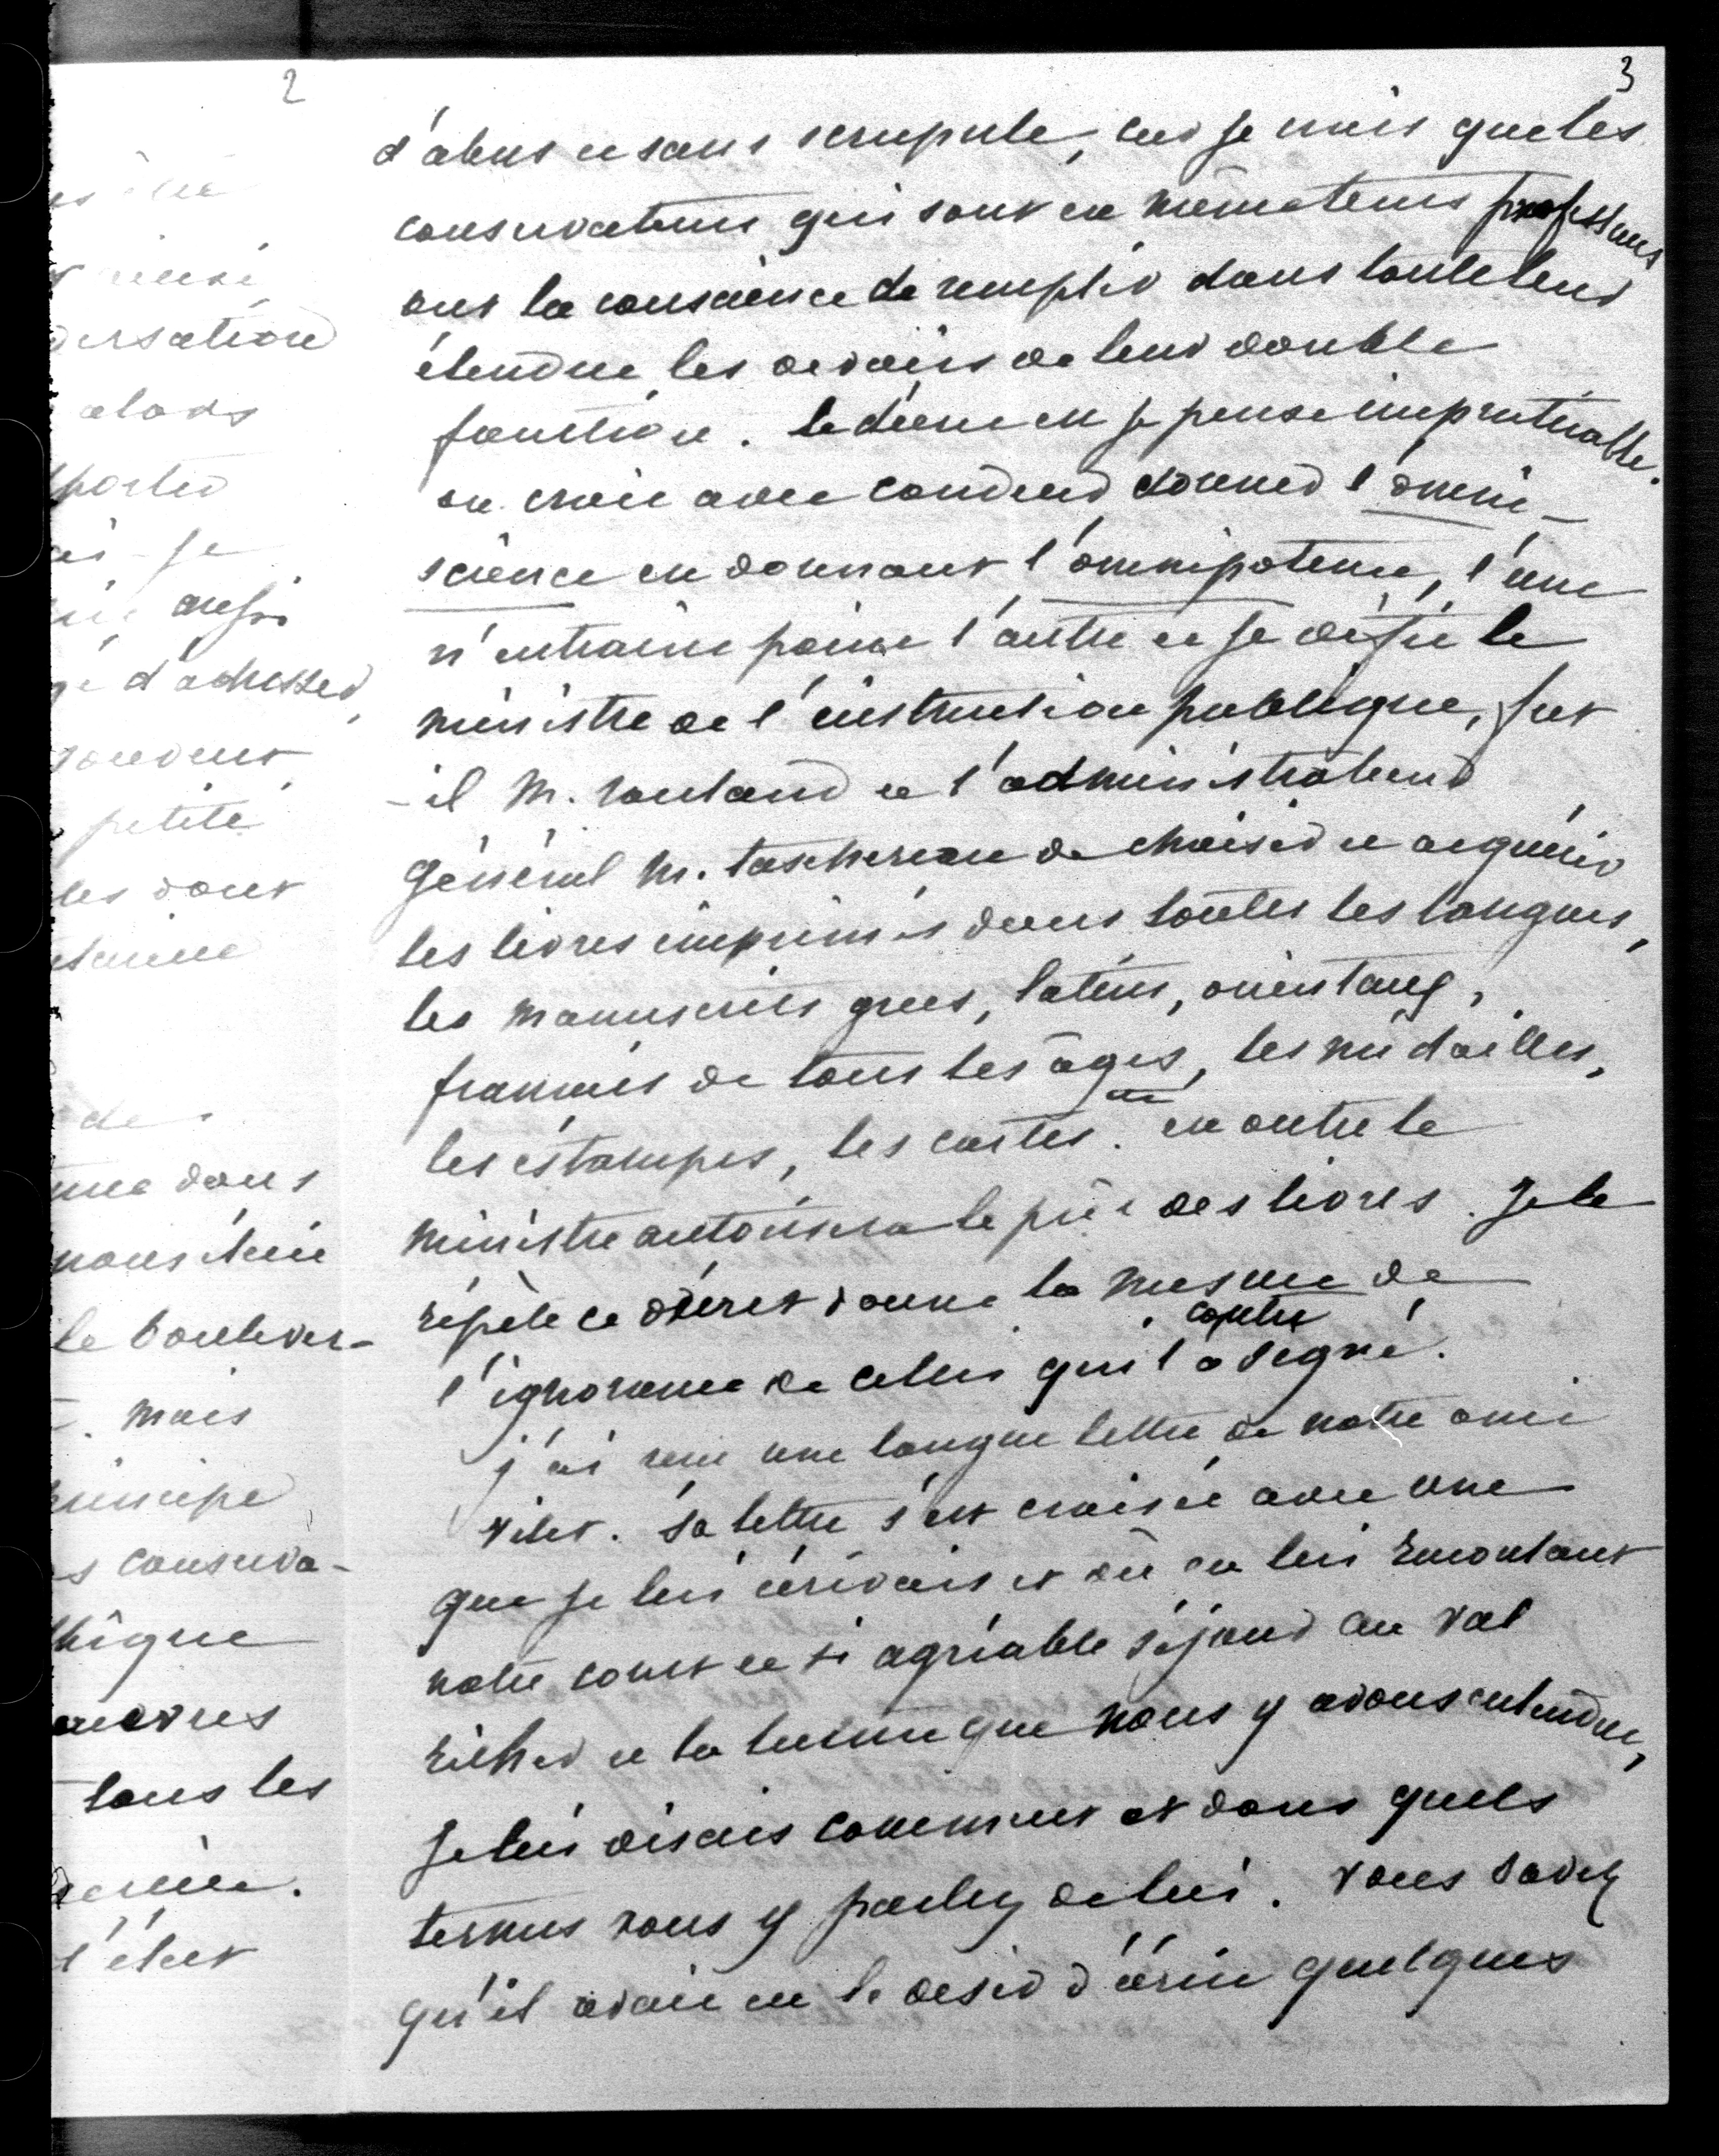 2
3
d'abus et sans scrupule, car je crois que les
conservateurs qui sont en même tems professeurs
ont la conscience de remplir dans toute leur
étendue les devoirs de leur double
fonction. le décret est je pense impraticable.
on croit avec candeur donner l'omni-
science en donnant l'omnipotence, l'une
n'entraine point l'autre et je défie le
ministre de l'instruction publique, fut
-il M. rouland et l'administrateur
général M. taschereau de choisir et acquérir
les livres imprimés dans toutes les langues,
les manuscrits grecs, latins, orientaux,
français de tous les âges, les médailles,
les estampes, les cartes. en outre le
ministre autorisera le prêt des livres. Je le
répète ce décret donne la mesure de
l'ignorance de celui qui l'a contre
signé.
j'ai reçu une longue lettre de notre ami
vitet. sa lettre s'est croisée avec une
que je lui écrivais et où en lui racontant
notre court et si agréable séjour au val
richer et la lecture que nous y avons entendue,
je lui disais comment et dans quels
termes vous y parlez de lui. vous savez
qu'il avait eu le desir d'écrire quelques
ersation
alors
porter
ai-je
aussi
d'adresser,
souvent
petite
les dont
de
dans
nous
le boulever-
mais
principe
s conserva-
œuvres
tous les
l'état